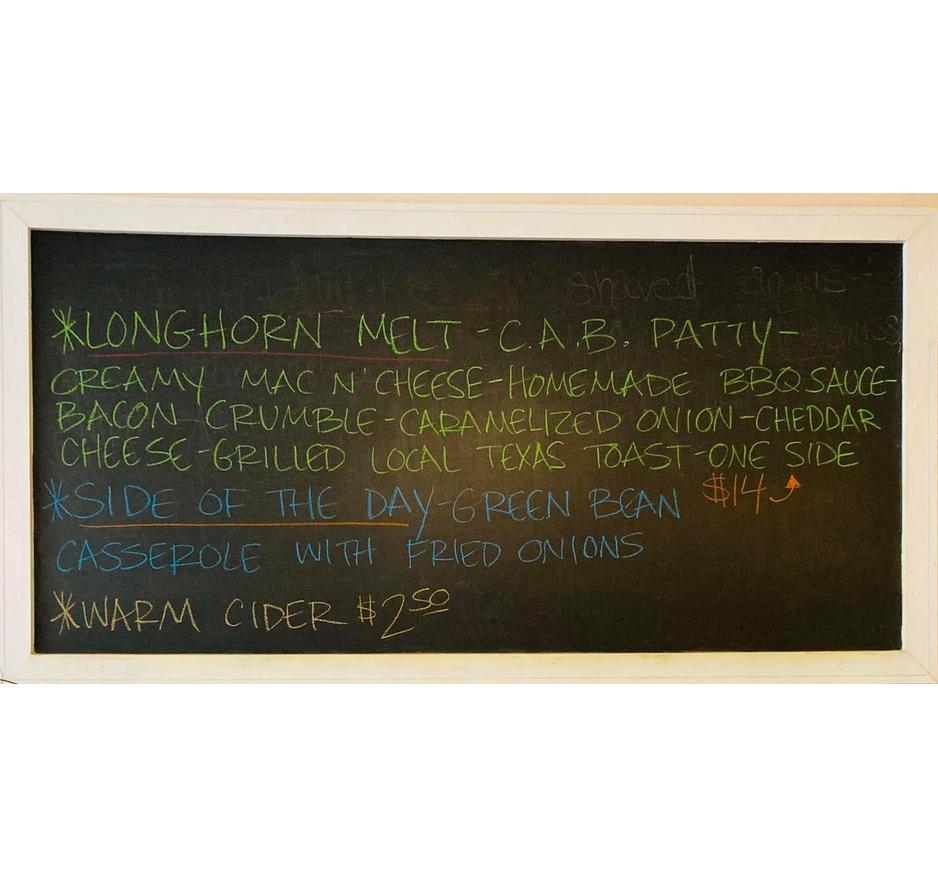 shaved
*LONGHORN MELT - C.A.B. PATTY-
CREAMY MAC N' CHEESE-HOMEMADE BBQ SAUCE-
BACON CRUMBLE-CARAMELIZED ONION-CHEDDAR
CHEESE-GRILLED LOCAL TEXAS TOAST-ONE SIDE
*SIDE OF THE DAY-GREEN BEAN $14
CASSEROLE WITH FRIED ONIONS
*WARM CIDER $2 50